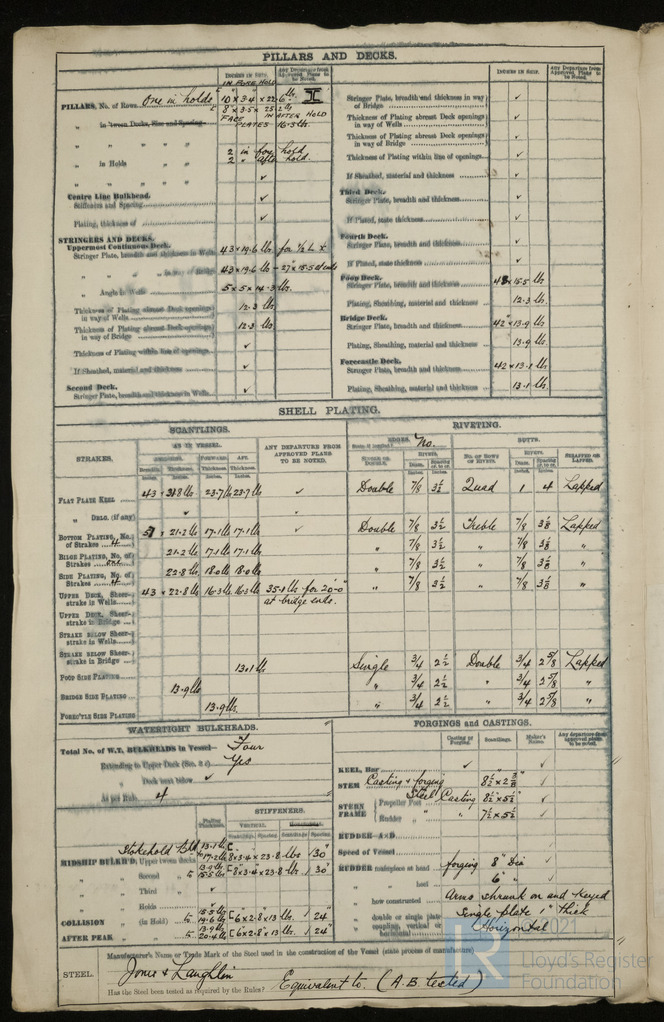 PILLARS AND DECKS.
INCHES IN SHIP. Any Departure from Approved Plans to be Noted.
IN FORE HOLD
PILLARS, No. of Rows One in holds
10 × 3·4 × 22·6 lbs. I
8 × 3·5 × 25·2
FACE IN AFTER HOLD
PLATES 16·3 lbs
" in 'tween Decks, Size and Spacing
2 in for'd hold
" in Holds 2 " aft hold.
Centre Line Bulkhead.
Stiffeners and Spacing
Plating, thickness of
STRINGERS AND DECKS.
Uppermost Continuous Deck.
Stringer Plate, breadth and thickness in Wells 43 × 19·6 lbs. for ½ L +
" " " in way of Bridge 43 × 19·6 lbs
" Angle in Wells 5 × 5 × 14·3 lbs.
Thickness of Plating abreast Deck openings in way of Wells 12·3 lbs.
Thickness of Plating abreast Deck openings in way of Bridge 12·3 lbs.
Thickness of Plating within line of openings
If Sheathed, material and thickness
Second Deck.
Stringer Plate, breadth and thickness in Wells
INCHES IN SHIP. Any Departure from Approved Plans to be Noted.
Stringer Plate, breadth and thickness in way of Bridge
Thickness of Plating abreast Deck openings in way of Wells
Thickness of Plating abreast Deck openings in way of Bridge
Thickness of Plating within line of openings
If Sheathed, material and thickness
Third Deck.
Stringer Plate, breadth and thickness
If Plated, state thickness
Fourth Deck.
Stringer Plate, breadth and thickness
If Plated, state thickness
Poop Deck.
Stringer Plate, breadth and thickness 15·5 lbs
Plating, Sheathing, material and thickness 12·3 lbs.
Bridge Deck.
Stringer Plate, breadth and thickness 42" × 13·9 lbs
Plating, Sheathing, material and thickness 13·9 lbs.
Forecastle Deck.
Stringer Plate, breadth and thickness 42 × 13·1 lbs
Plating, Sheathing, material and thickness 13·1 lbs.
SHELL PLATING.
SCANTLINGS. RIVETING.
STRAKES. AS IN VESSEL. ANY DEPARTURE FROM APPROVED PLANS TO BE NOTED. EDGES. No. BUTTS.
AMIDSHIPS. FORWARD. AFT. SINGLE OR DOUBLE. RIVETS. NO. OF ROWS OF RIVETS. RIVETS. STRAPPED OR LAPPED.
Breadth. Thickness. Thickness. Thickness. Diam. Spacing cr. to cr. Diam. Spacing cr. to cr.
FLAT PLATE KEEL 43 × lbs 23·7 lbs 23·7 lbs Double 7/8 3½ Quad 1 4 Lapped
" DBLG. (if any)
BOTTOM PLATING, No. of Strakes 4 × 21·2 lbs 17·1 lbs 17·1 lbs Double 7/8 3½ Treble 7/8 3⅛ Lapped
21·2 lbs 17·1 lbs 17·1 lbs " 7/8 3½ " 7/8 3⅛ "
BILGE PLATING, No. of Strakes one
22·8 lbs 18·0 lbs 18·0 lbs " 7/8 3½ " 7/8 3⅛ "
SIDE PLATING, No. of Strakes 4
UPPER DECK, Sheerstrake in Wells 43 × 22·8 lbs 16·3 lbs 16·3 lbs 35·4 lbs for 20'-0" at bridge ends. " 7/8 3½ " 7/8 3⅛ "
UPPER DECK, Sheerstrake in Bridge
STRAKE BELOW Sheerstrake in Wells
STRAKE BELOW Sheerstrake in Bridge
POOP SIDE PLATING 13·1 lbs Single 3/4 2½ Double 3/4 2⅝ Lapped
BRIDGE SIDE PLATING 13·9 lbs " 3/4 2½ " 3/4 2⅝ "
FORE'C'TLE SIDE PLATING 13·9 lbs. " 3/4 2½ " 3/4 2⅝ "
WATERTIGHT BULKHEADS.
Total No. of W.T. BULKHEADS in Vessel— Four
Extending to Upper Deck Yes
" Deck next below
As per Rule 4
Plating Thickness. STIFFENERS.
VERTICAL. HORIZONTAL.
Scantlings. Spacing Scantlings Spacing
Stokehold Bhd
MIDSHIP BULKH'D, Upper tween decks 8×3·4×23·8 lbs 30"
" " Second " 8×3·4×23·8 lbs 30"
" " Third "
" " Holds
COLLISION " (in Hold) [6×2·8×13 24"
AFTER PEAK " [6×2·8×13 24"
FORGINGS AND CASTINGS.
Casting or Forging. Scantlings. Maker's Name. Any departure from approved plans to be noted.
KEEL, Bar
STEM Casting & forging 8½ × 2⅜
STERN FRAME Propeller Post Steel Casting 8½ × 5½
Rudder " " 7½ × 5½
RUDDER—A×D
Speed of Vessel
RUDDER mainpiece at head forging 8" Dia
" " heel 6"
" how constructed Arms shrunk on and keyed
" double or single plate Single plate 1" thick
" coupling, vertical or horizontal Horizontal
Manufacturer's Name or Trade Mark of the Steel used in the construction of the Vessel (state process of manufacture)
STEEL. Jones & Laughlin
Has the Steel been tested as required by the Rules? Equivalent to. (A.B. tested)
2021
Lloyd's Register
Foundation